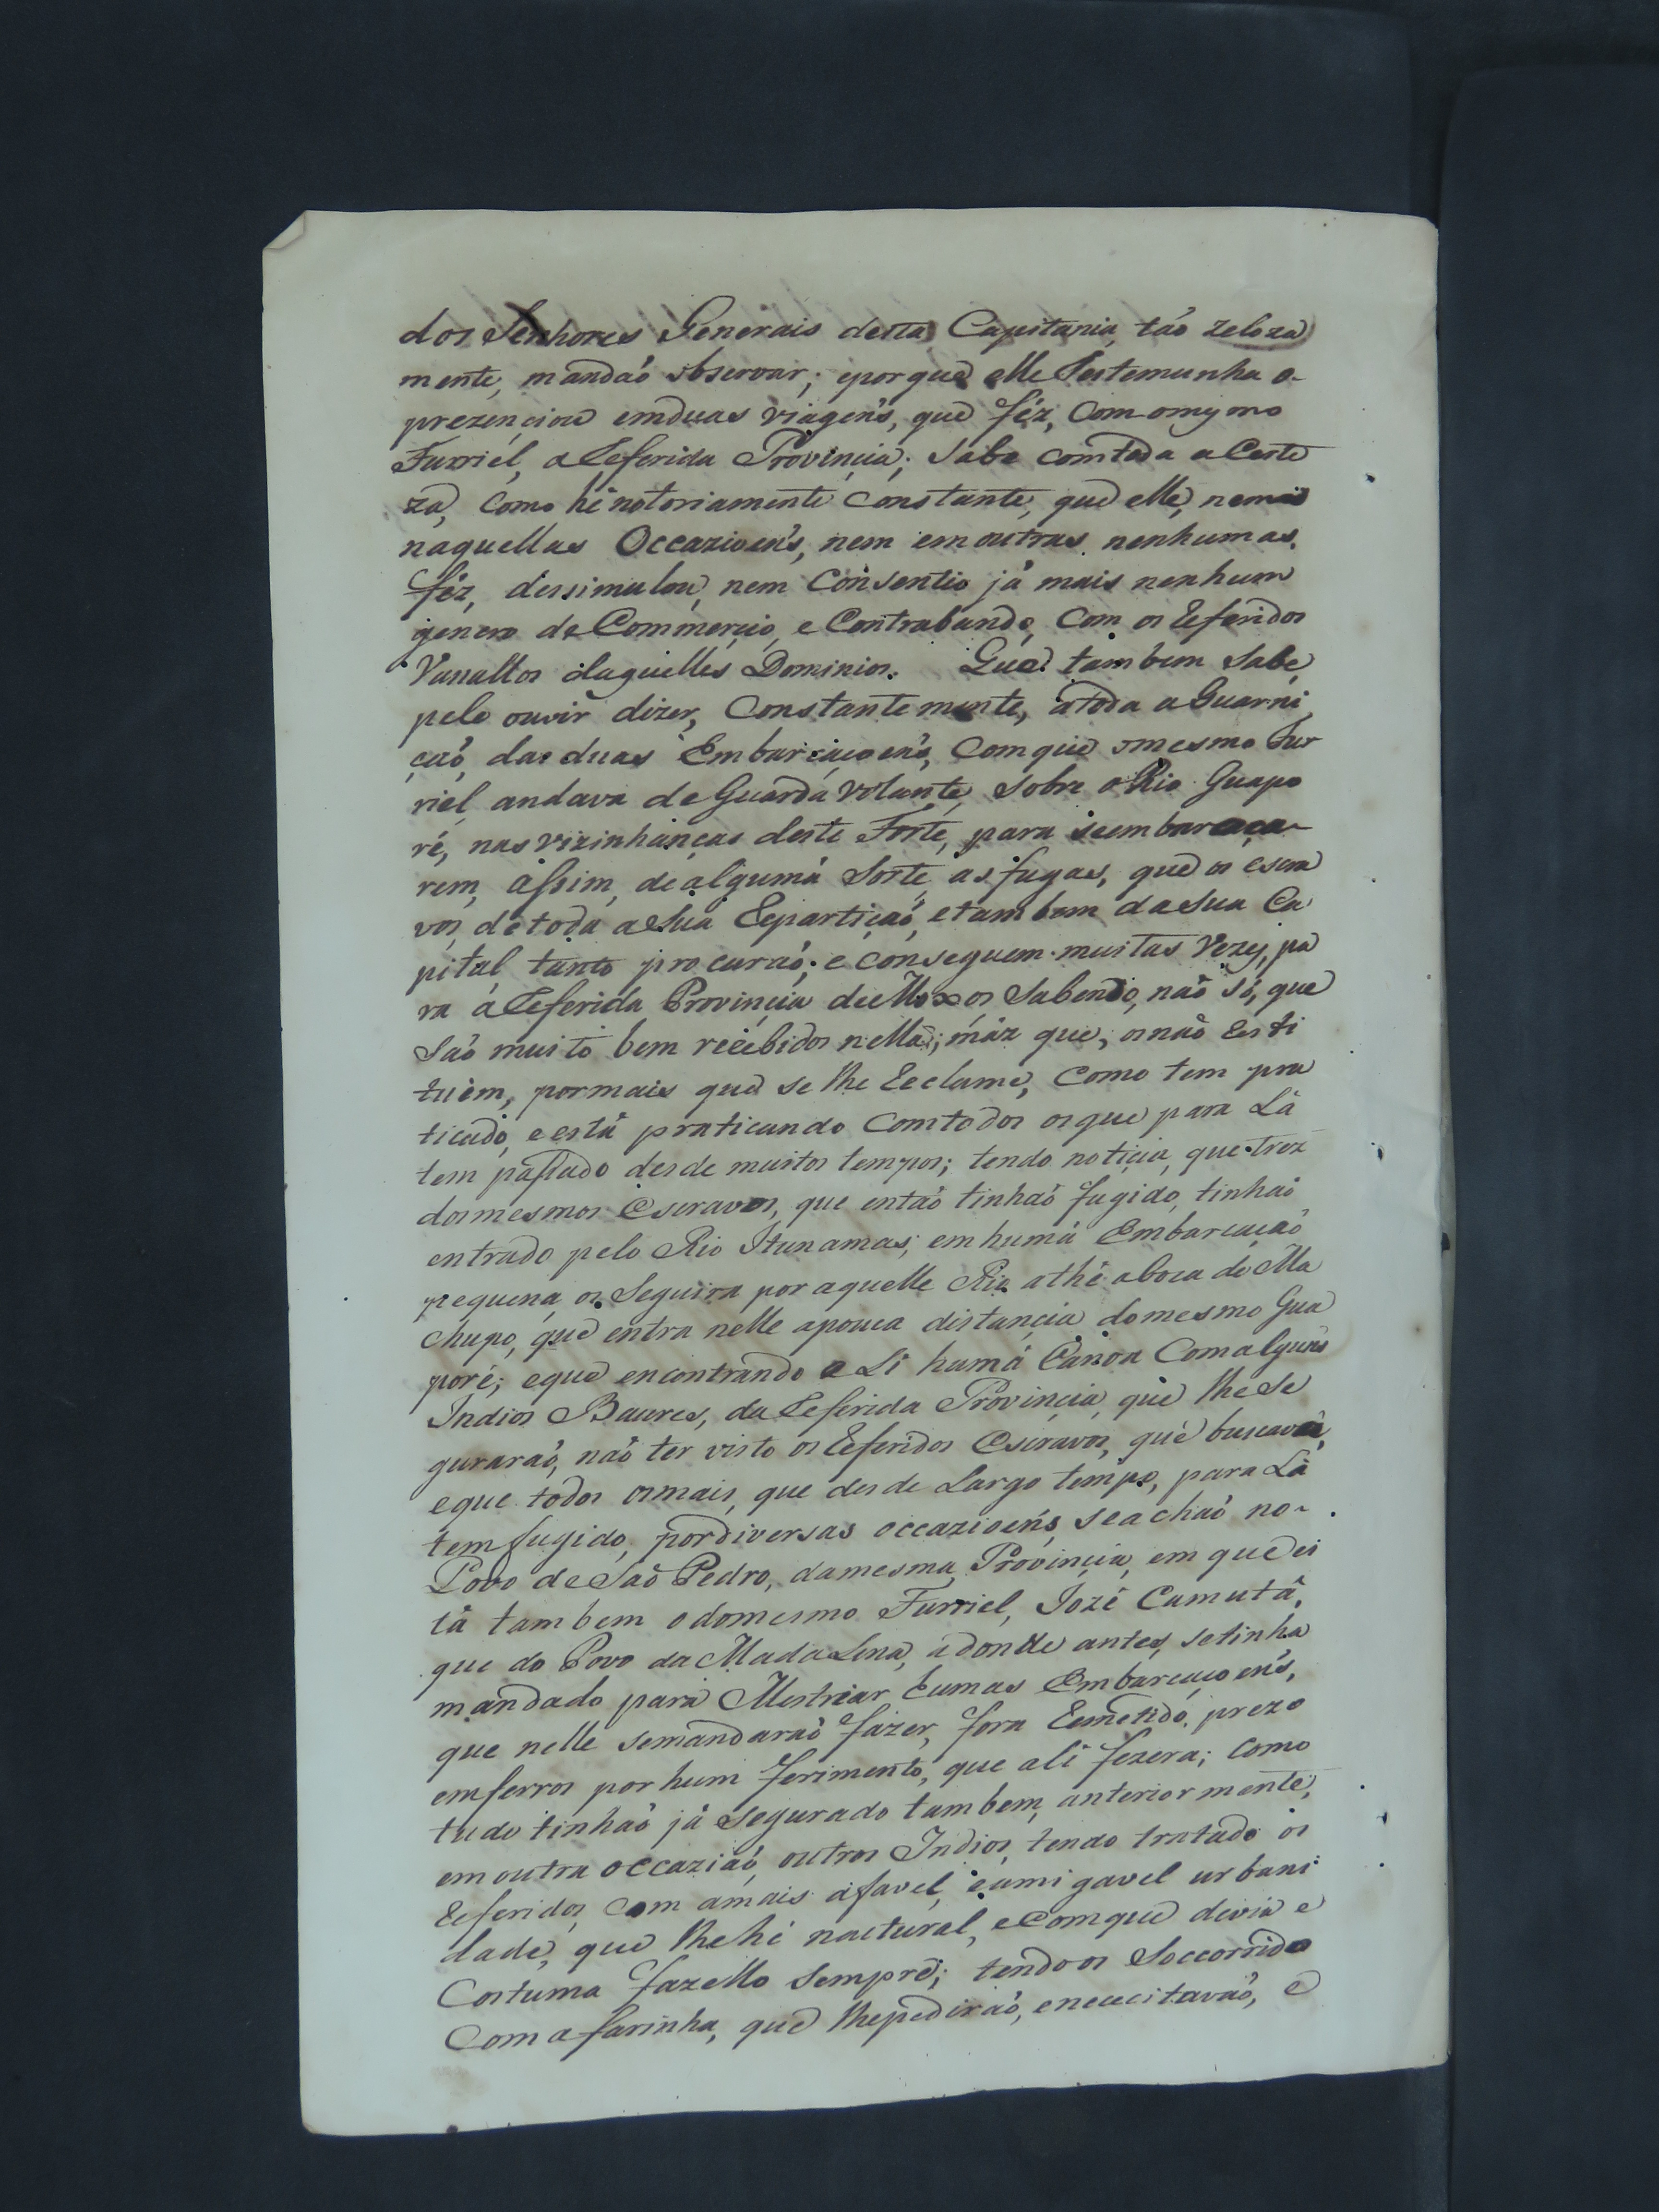 dos Senhores Generais desta Capitania, taõ zeloza
mente, mandaõ observar; eporque elle Testemunha o-
prezenciou emduas viagen's, que fêz, Com omesmo
Furriel, a Referida Provincia; Sabe comtoda a Certe
za, Como hé notoriamente Constante, que elle, nem
naquellas Occazioen's, nem emoutras nenhumas,
fêz, dessimulou, nem Consentio já mais nenhum
genero de Commercio, e Contrabando, Com os Referidos
Vassallos daquelles Dominios. Que tambem Sabe,
pelo ouvir dizer, Constantemente, atoda a Guarni
çaõ, das duas Embarcaçoen's, Comque omesmo Fur
riel andava de Guarda volante, Sobre o Rio Guapo
ré, nas vizinhanças deste Forte, para seembaraça-
rem, assim, dealguma Sorte, as fugas, que os escra
vos, detoda aSua Repartiçaõ, etambem daSua Ca
pital tanto procuraõ; e conseguem muitas vezes, pa
ra a Referida Provincia deMoxos, Sabendo, naõ só, que
Saõ muito bem recebidos nella; máz que, osnaõ Resti
tuem, pormais que se lhe Reclame, Como tem pra
ticado, e está praticando Comtodos osque para Lá
tem passado desde muitos tempos; tendo noticia, que trez
dosmesmos Escravos, que entaõ tinhaõ fugido, tinhaõ
entrado pelo Rio Itunamas; em huma Embarcaçaõ
pequena, os Seguira por aquelle Rio athé aboca do Ma
chupo, que entra nelle apouca distancia domesmo Gua
poré; eque encontrando aLi huma Canoa Comalguns
Indios Baures, da Referida Provincia, que lhe Se
guraraõ, naõ ter visto os Referidos Escravos, que buscava,
eque todos osmais, que desde Largo tempo, para Lá
tem fugido, pordiversas occazioen's, seachaõ no-
Povo deSaõ Pedro, damesma Provincia, em que es
tá tambem odomesmo Furriel, Jozé Camutá,
que do Povo da MadaLena, adonde antes, setinha
mandado para Mestriar humas Embarcaçoen's,
que nelle semandaraõ fazer, fora Remetido, prezo
emferros por hum ferimento, que ali fezera; Como
tudo tinhaõ já segurado tambem, anteriormente,
em outra occaziaõ, outros Indios, tendo tratado os
Referidos, Com amais afavel, eamigavel urbani
dade, que lhehé nactural, eComque devia e
Costuma fazello Sempre; tendoos Soccorrido
Com a farinha, que lhepediraõ, enececitavaõ, e